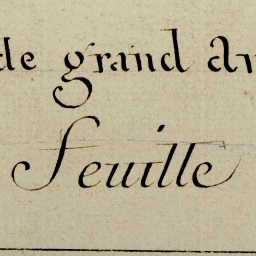 de grand
Feuille